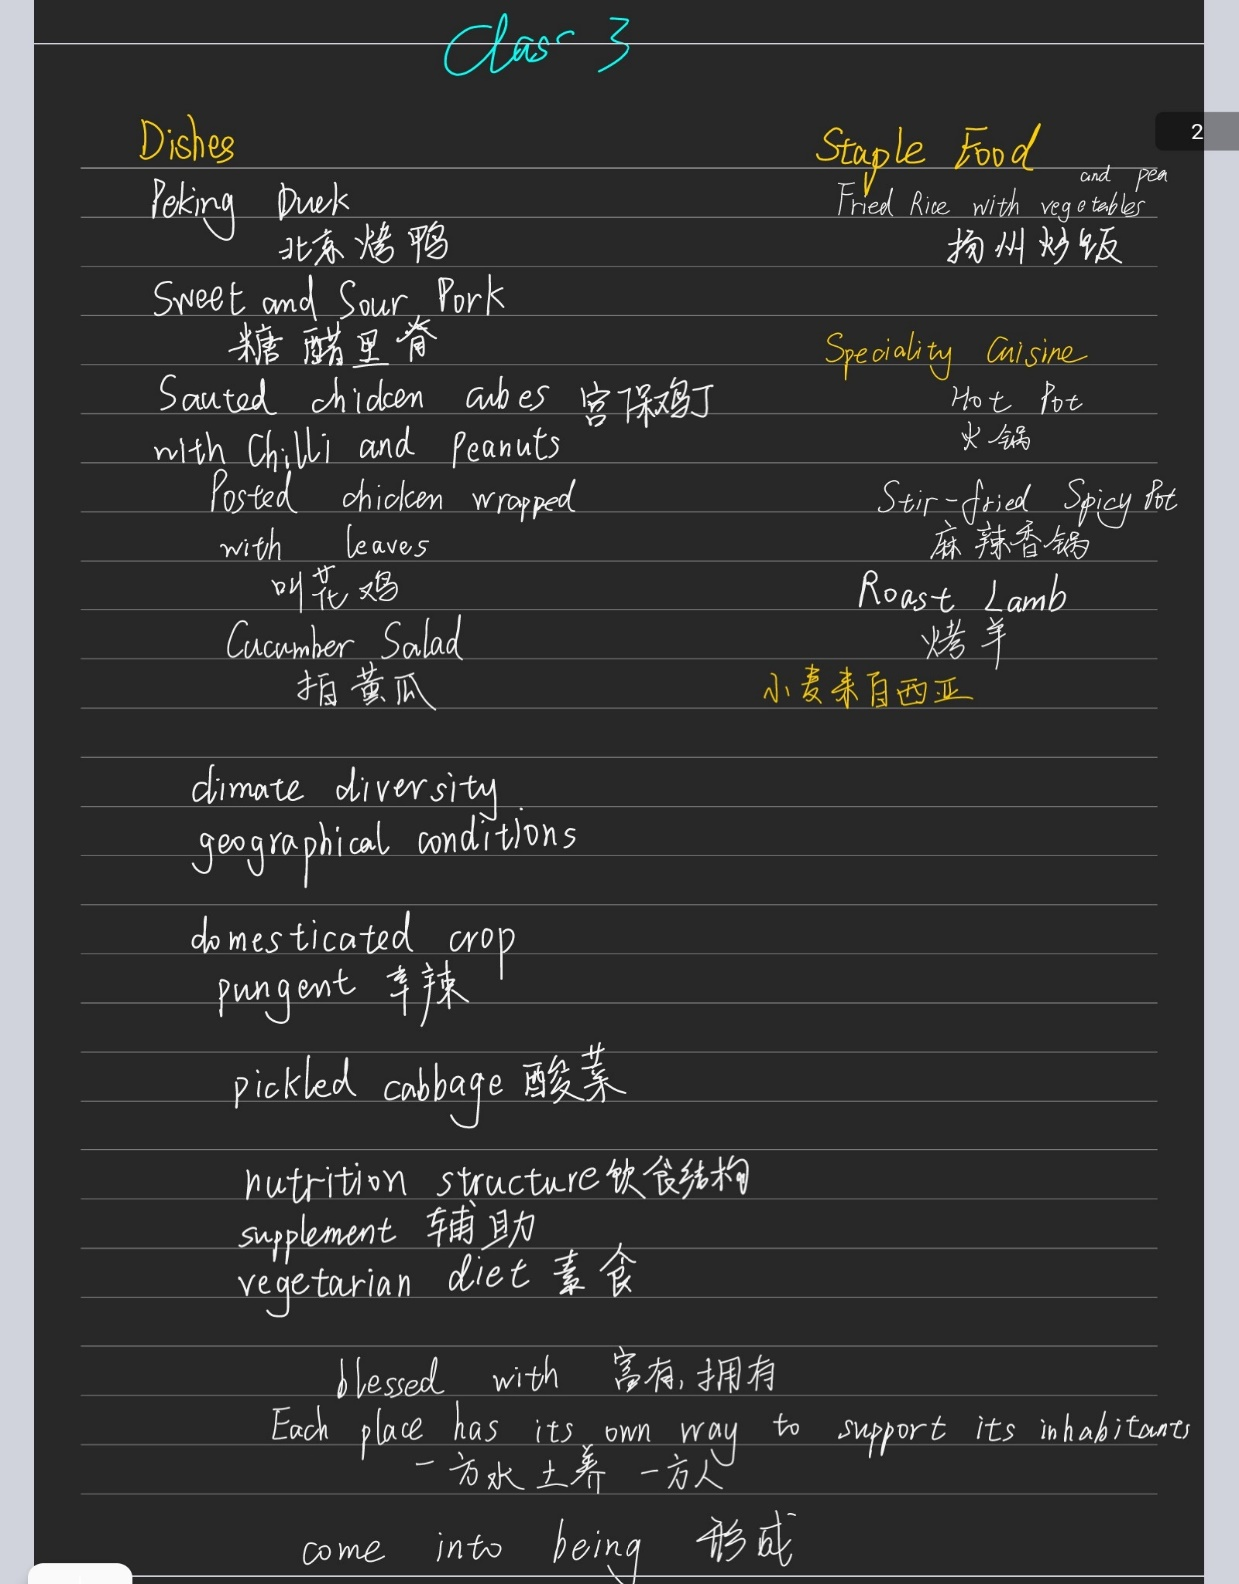 Class 3
2
Dishes
Peking Duck
北京烤鸭
Sweet and Sour Pork
糖醋里脊
Sauted chicken cubes 宫保鸡丁
with Chilli and Peanuts
Posted chicken wrapped
with leaves
叫花鸡
Cucumber Salad
拍黄瓜
Staple Food
and pea
Fried Rice with vegetables
扬州炒饭
Speciality Cuisine
Hot Pot
火锅
Stir-fried Spicy Pot
麻辣香锅
Roast Lamb
烤羊
小麦来自西亚
climate diversity
geographical conditions
domesticated crop
pungent 辛辣
pickled cabbage 酸菜
nutrition structure 饮食结构
supplement 辅助
vegetarian diet 素食
blessed with 富有,拥有
Each place has its own way to support its inhabitants
一方水土养一方人
come into being 形成